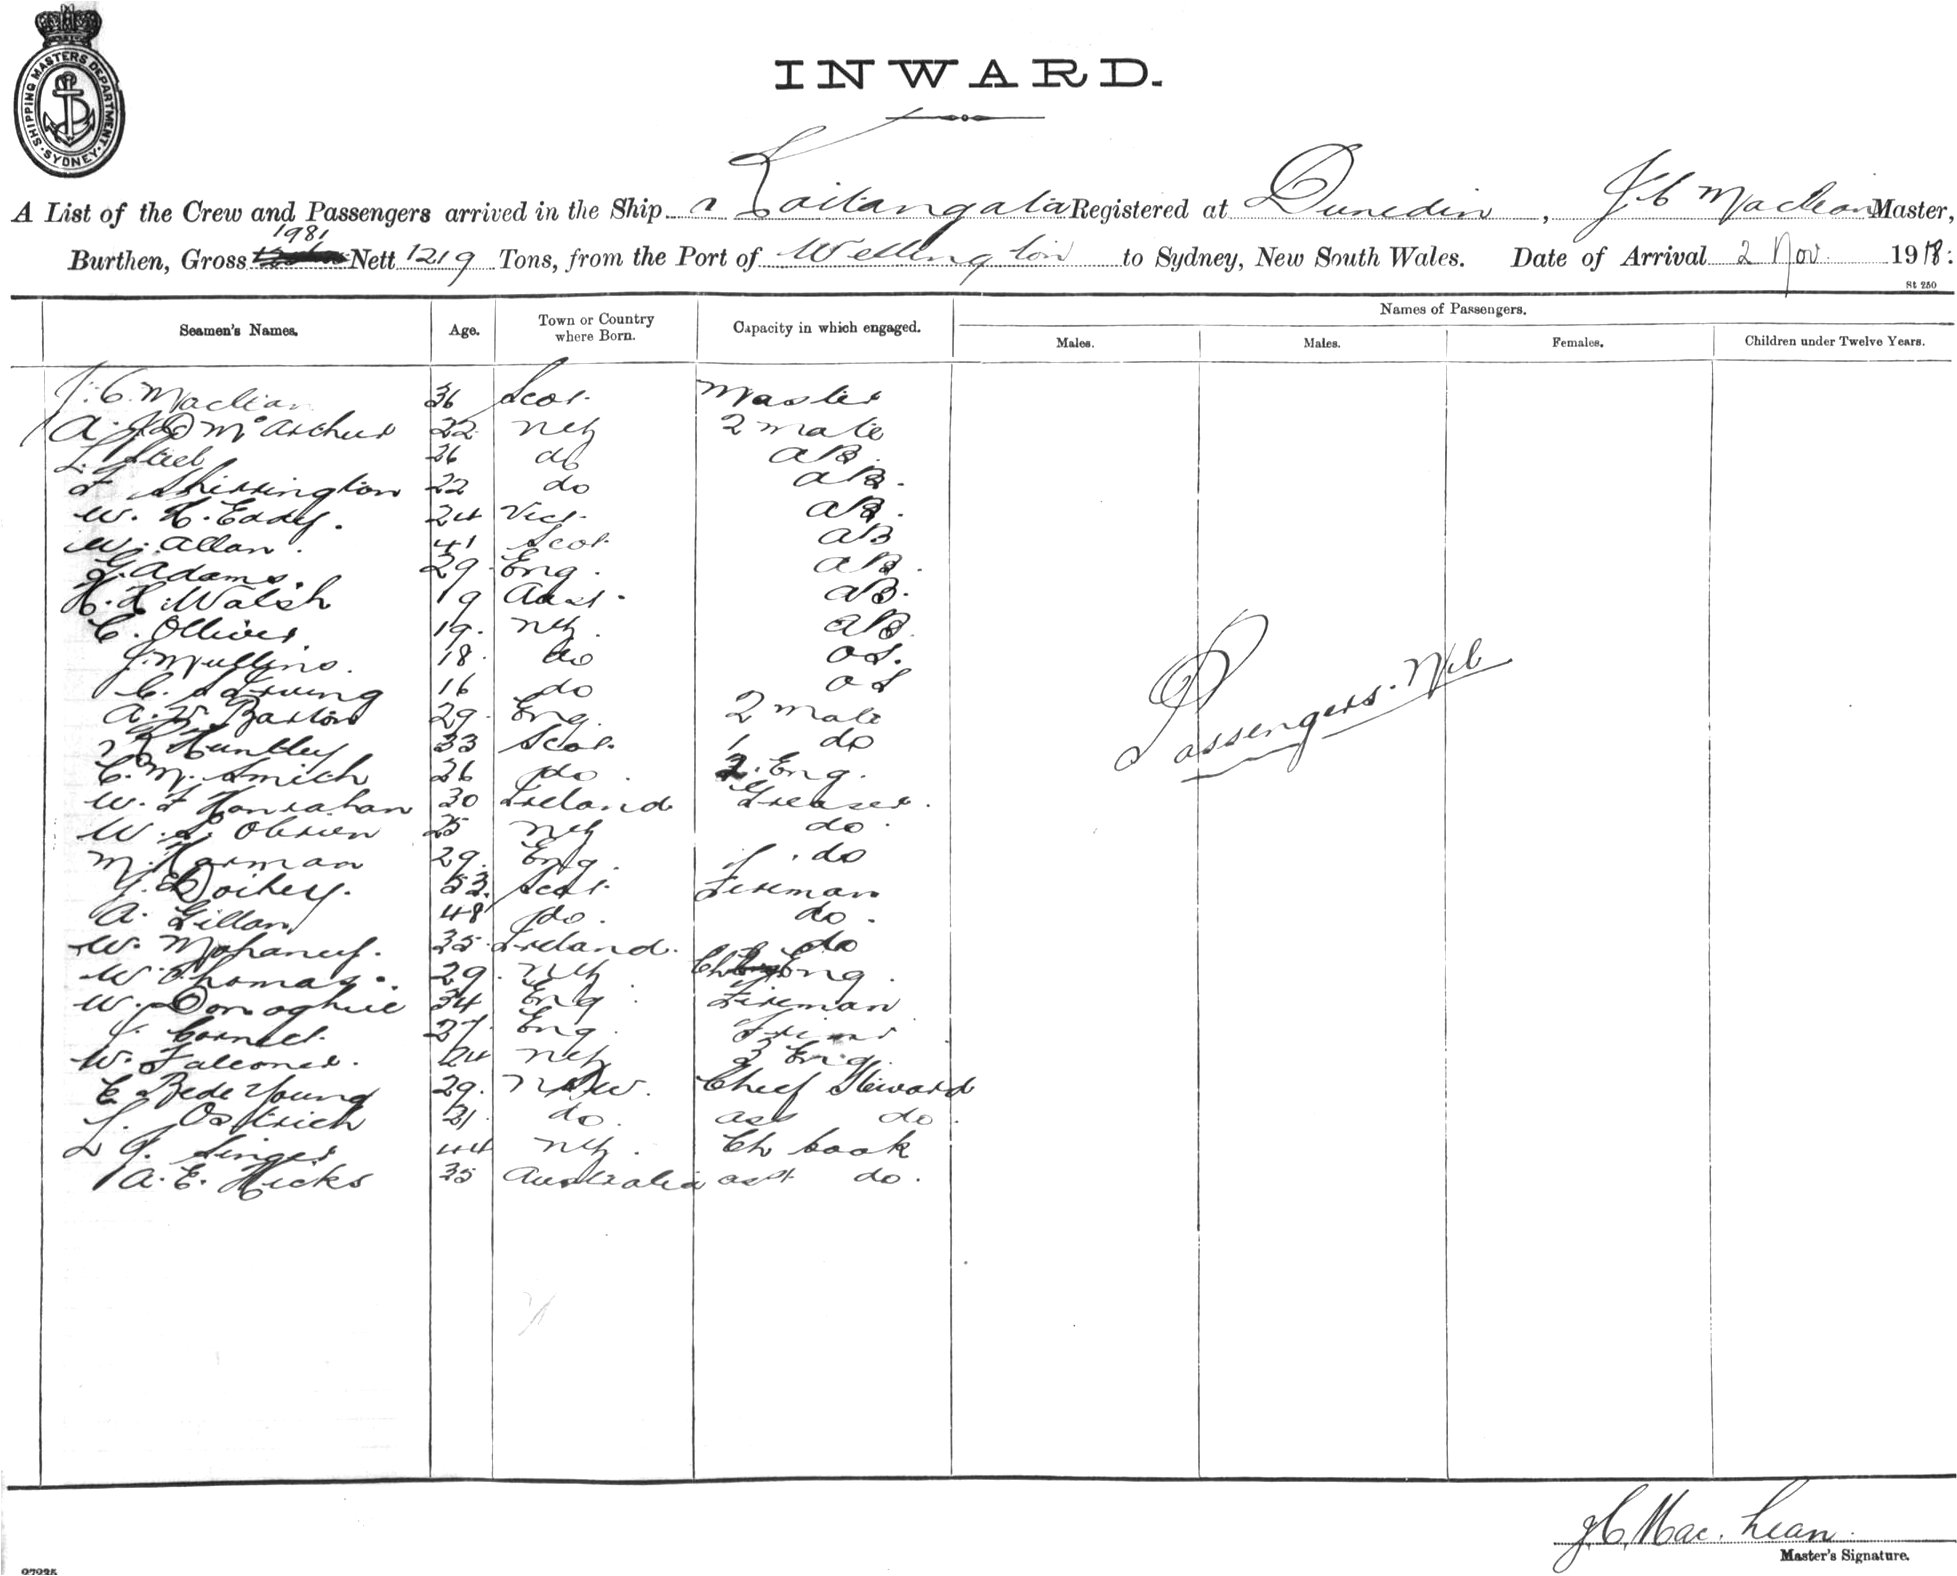 SHIPPING MASTERS DEPARTMENT. SYDNEY.
INWARD.
A List of the Crew and Passengers arrived in the Ship Kaitangata Registered at Dunedin, J C Maclean Master,
1981
Burthen, Gross Nett 1219 Tons, from the Port of Wellington to Sydney, New South Wales. Date of Arrival 2 Nov. 1918:
St 250
Seamen's Names. Age. Town or Country where Born. Capacity in which engaged. Names of Passengers.
Males. Males. Females. Children under Twelve Years.
J. C. Maclean 36 Scot. Master
A. McArthur 22 NZ 2 Mate
L. Steel 26 do AB.
F Skirrington 22 do AB.
W. H. Eddy. 24 Vict. AB.
W. Allan. 41 Scot. AB
G. Adams. 29. Eng. AB.
H. H. Walsh 19 Aust. AB.
C. Olliver 19. NZ. AB.
J. Mullins. 18. do OS.
C. Irving 16 do OS
A. Barton 29. Eng. 2 Mate
R Huntley 33 Scot. 1 do
C. M. Smith 26 do. 2. Eng.
W. F Hanrahan 30 Ireland Greaser.
W. S. Obrien 25 NZ do.
M. Harman 29. Eng. do
53. Scot. Fireman
A. Gillan 48 do. do.
W. Mohaney. 35. Ireland. do
W. Thomas. 29. NZ Ch Eng.
W. Donoghue 34 Eng. Fireman
J. Cornect. 27. Eng. Trimr
W. Falconer. 24 NZ 3 Eng.
C Bede Young 29. NSW. Chief Steward
L. Ostrich 21. do. ass do.
L J. Singer 44 NZ. Ch Cook
A. E. Hicks 35 Australia asst do.
Passengers. Nil
J C Mac. Lean.
Master's Signature.
27235